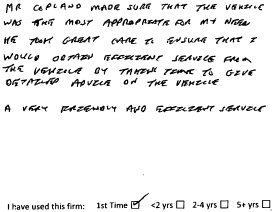 MR COPLAND MADE SURE THAT THE VEHICLE
WAS THE MOST APPROPRIATE FOR MY NEED
HE TOOK GREAT CARE TO ENSURE THAT I
WOULD OBTAIN EFFICIENT SERVICE FROM
THE VEHICLE BY TAKING TIME TO GIVE
DETAILED ADVICE ON THE VEHICLE
A VERY FRIENDLY AND EFFICIENT SERVICE
I have used this firm: 1st Time ☑ <2 yrs ☐ 2-4 yrs ☐ 5+ yrs ☐